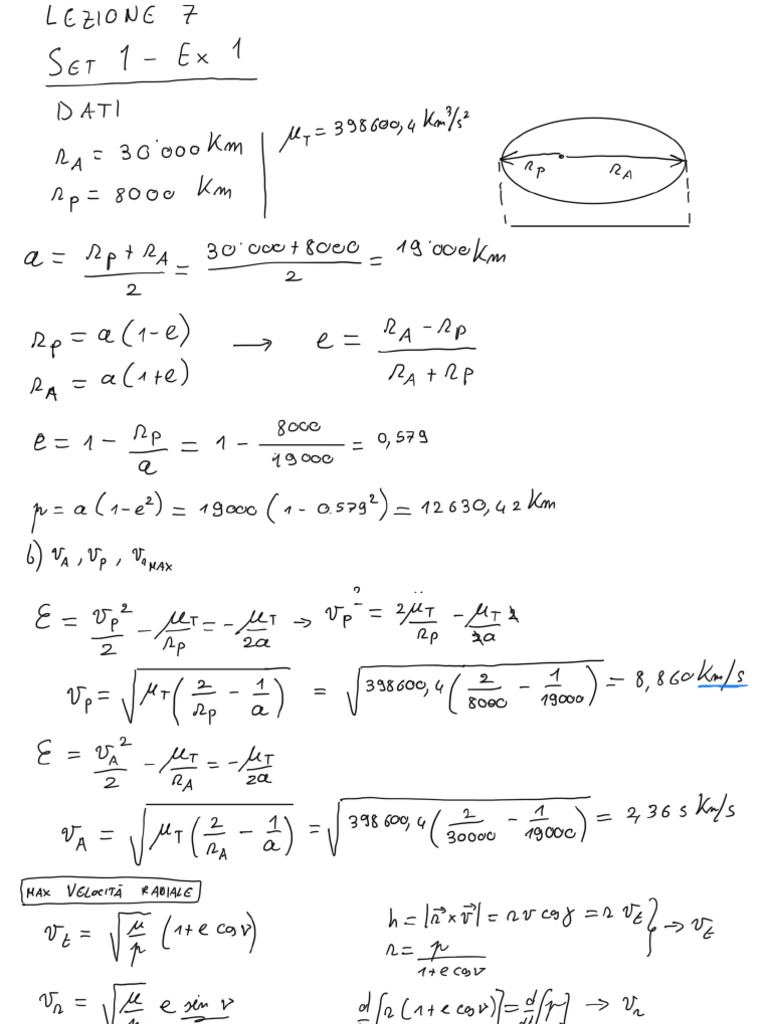 LEZIONE 7
SET 1 - Ex 1
DATI
r_A = 30'000 Km
μ_T = 398600,4 Km³/s²
r_P = 8000 Km
r_P r_A
a = (r_P + r_A)/2 = (30'000 + 8000)/2 = 19'000 Km
r_P = a(1-e) → e = (r_A - r_P)/(r_A + r_P)
r_A = a(1+e)
e = 1 - r_P/a = 1 - 8000/19000 = 0,579
p = a(1-e²) = 19000(1-0.579²) = 12630,42 Km
b) v_A, v_P, v_r MAX
ε = v_P²/2 - μ_T/r_P = -μ_T/2a → v_P² = 2μ_T/r_P - μ_T 2/2a
v_P = √(μ_T(2/r_P - 1/a)) = √(398600,4(2/8000 - 1/19000)) = 8,860 Km/s
ε = v_A²/2 - μ_T/r_A = -μ_T/2a
v_A = √(μ_T(2/r_A - 1/a)) = √(398600,4(2/30000 - 1/19000)) = 2,365 Km/s
MAX VELOCITÀ RADIALE
v_t = √(μ/p) (1+e cos ν)
h = |r⃗ × v⃗| = r v cos γ = r v_t } → v_t
r = p/(1+e cos ν)
v_r = √(μ/p) e sin ν
d/[r(1+e cos ν)] = d/[p] → v_r